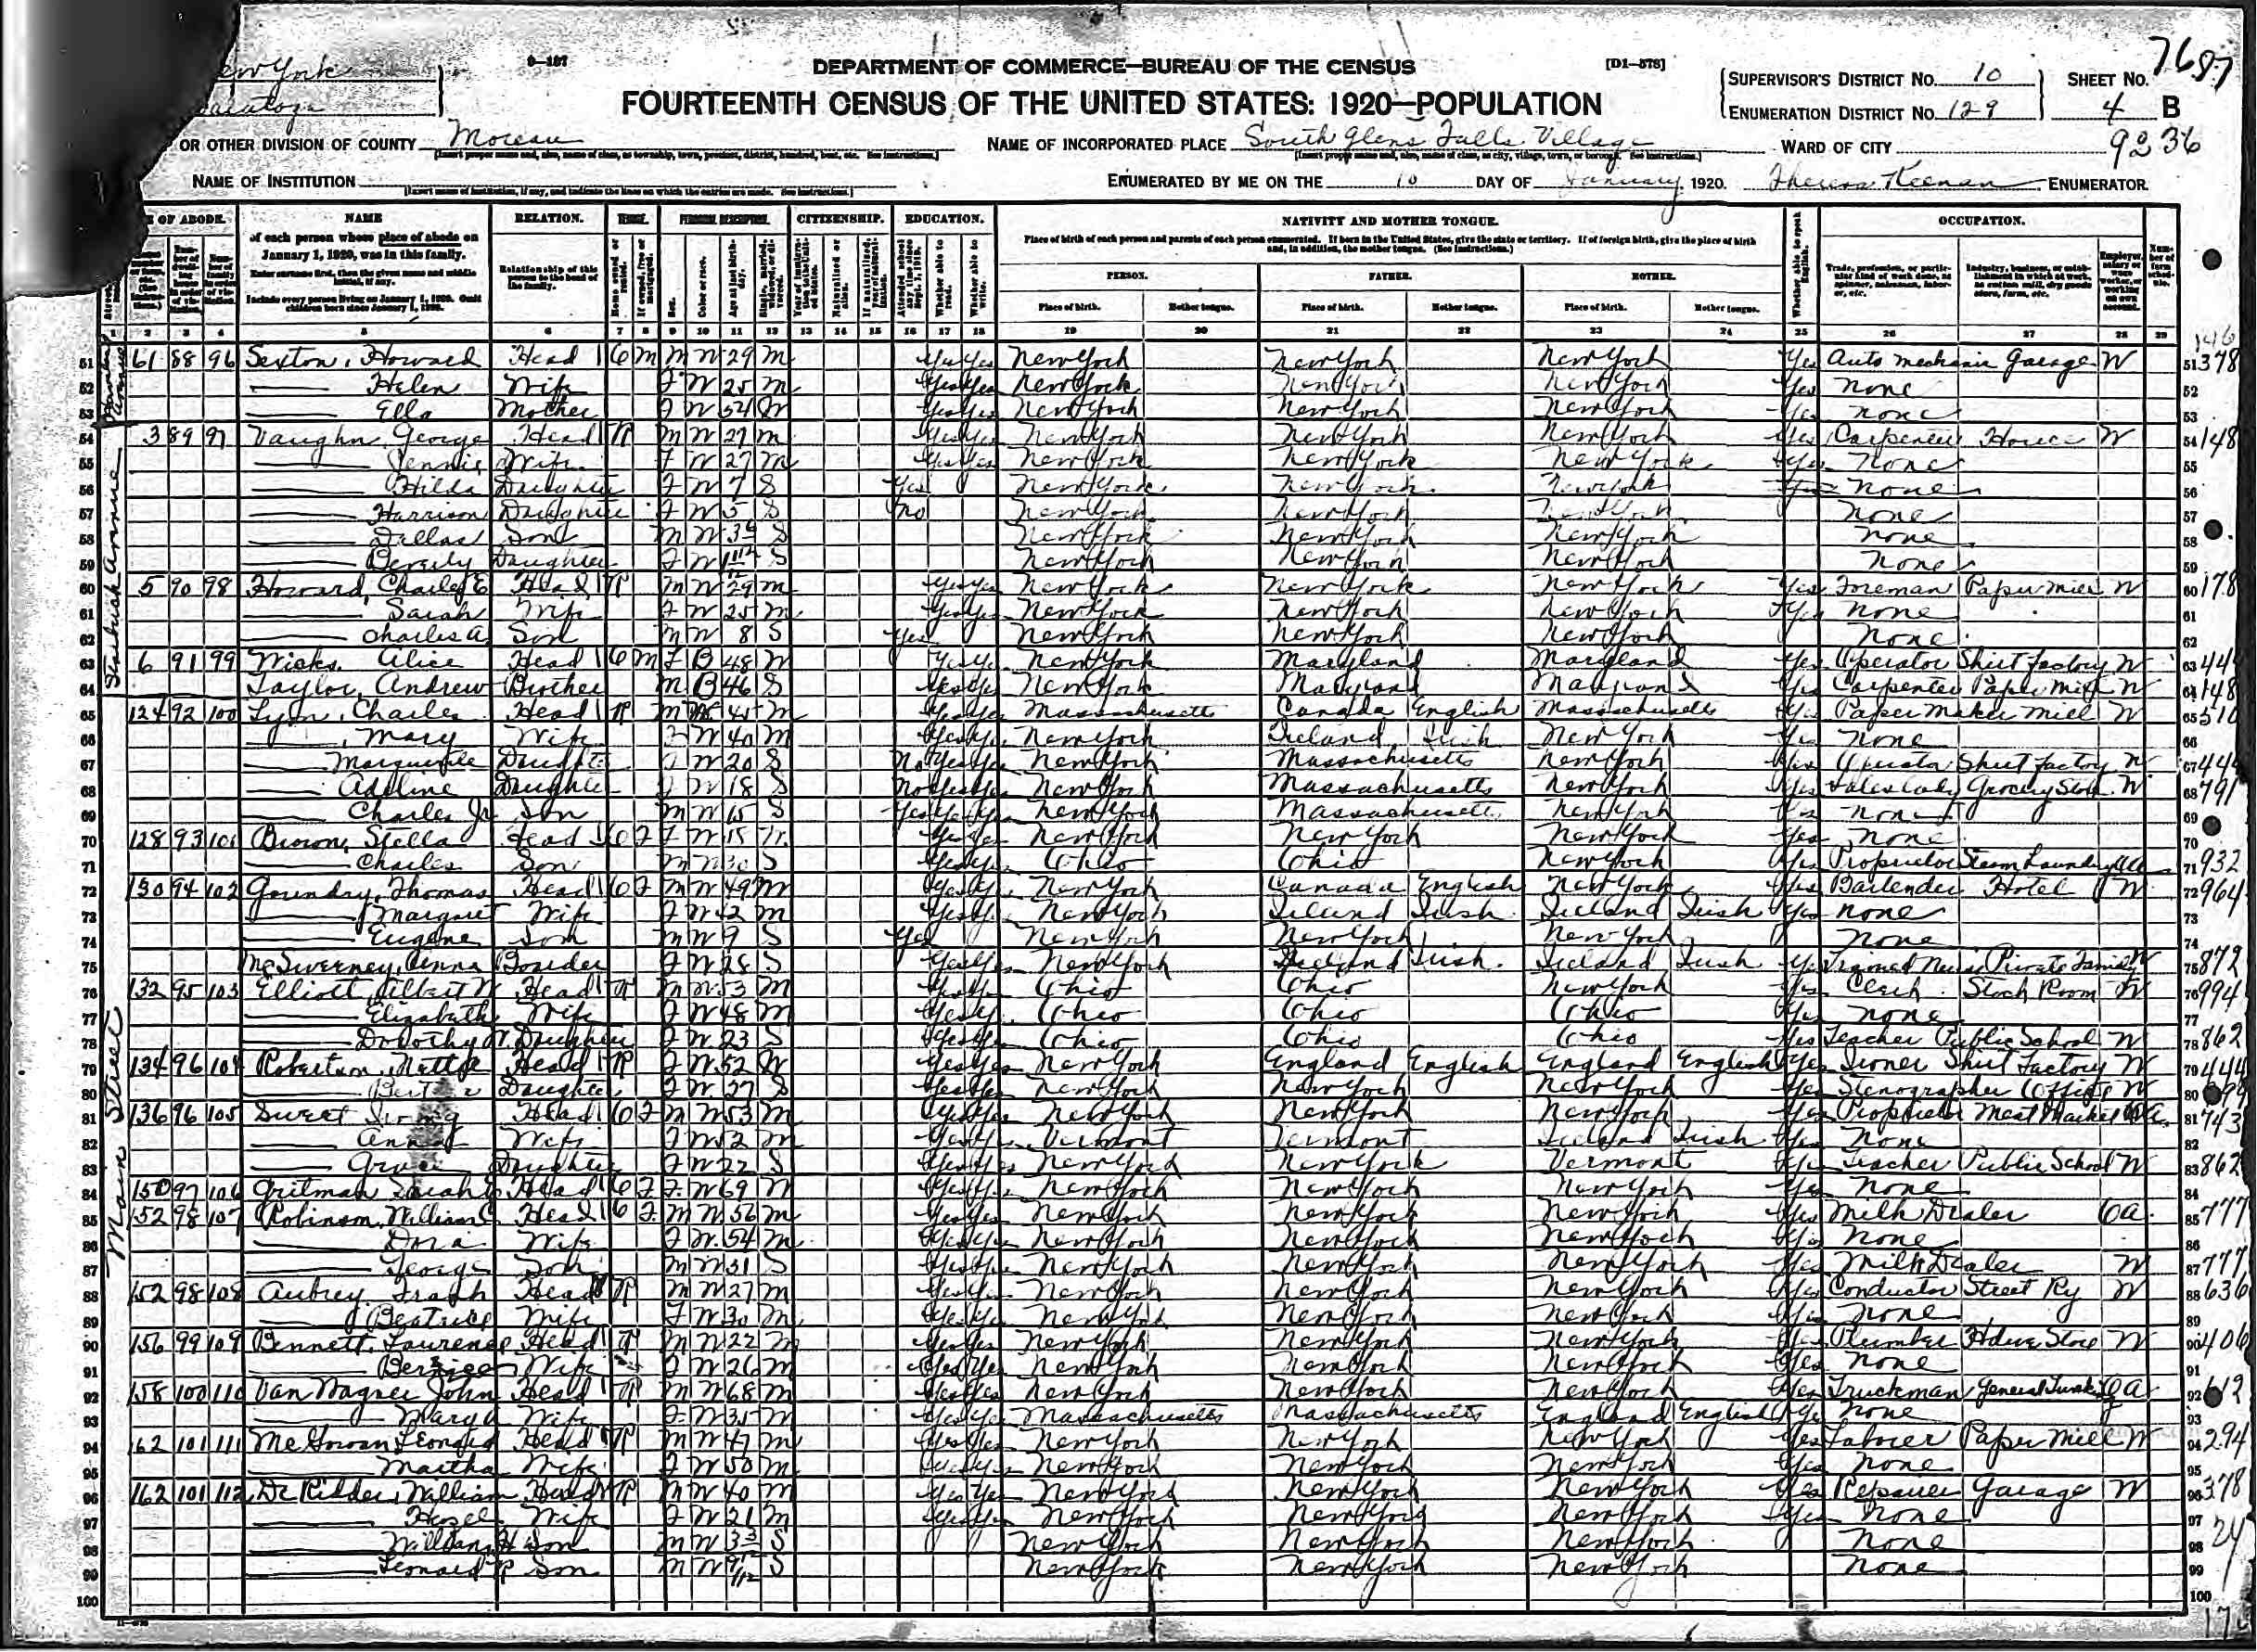 New York
Saratoga
9-187
DEPARTMENT OF COMMERCE—BUREAU OF THE CENSUS
[D1-578]
7687
FOURTEENTH CENSUS OF THE UNITED STATES: 1920—POPULATION
SUPERVISOR'S DISTRICT No. 10
SHEET No.
ENUMERATION DISTRICT No. 129
4 B
OR OTHER DIVISION OF COUNTY Moreau
NAME OF INCORPORATED PLACE South Glens Falls Village
WARD OF CITY
9236
NAME OF INSTITUTION
ENUMERATED BY ME ON THE 10 DAY OF January, 1920. Theresa Keenan ENUMERATOR.
OF ABODE. NAME RELATION. PERSONAL DESCRIPTION. CITIZENSHIP. EDUCATION. NATIVITY AND MOTHER TONGUE. OCCUPATION.
of each person whose place of abode on January 1, 1920, was in this family.
Place of birth of each person and parents of each person enumerated. If born in the United States, give the state or territory. If of foreign birth, give the place of birth and, in addition, the mother tongue. (See Instructions.)
PERSON. FATHER. MOTHER.
Place of birth. Mother tongue. Place of birth. Mother tongue. Place of birth. Mother tongue.
1 2 3 4 5 6 7 8 9 10 11 12 13 14 15 16 17 18 19 20 21 22 23 24 25 26 27 28 29
51 61 88 96 Sexton, Howard Head 1 O M M W 29 M Yes Yes New York New York New York Yes Auto mechanic Garage W 51 378
52 Helen Wife F W 25 M Yes Yes New York New York New York Yes None 52
53 Ella Mother F W 54 W Yes Yes New York New York New York Yes None 53
Feeder
54 3 89 97 Vaughn, George Head 1 R M W 27 M Yes Yes New York New York New York Yes Carpenter House W 54 148
55 Jennie Wife F W 27 M Yes Yes New York New York New York Yes None 55
56 Hilda Daughter F W 7 S Yes New York New York New York None 56
57 Harrison Daughter F W 5 S No New York New York New York None 57
58 Dallas Son M W S New York New York New York None 58
59 Beverly Daughter F W S New York New York New York None 59
60 5 90 98 Howard, Charles E Head 1 R M W 29 M Yes Yes New York New York New York Yes Foreman Paper Mill W 60 178
61 Sarah Wife F W 25 M Yes Yes New York New York New York Yes None 61
62 Charles A. Son M W 8 S Yes New York New York New York None 62
63 6 91 99 Wicks, Alice Head 1 O M F B 48 Yes Yes New York Maryland Maryland Yes Operator Shirt Factory W 63 444
64 Taylor, Andrew Brother M B 46 S Yes Yes New York Maryland Maryland Yes Carpenter Paper Mill W 64 148
65 124 92 100 Lyon, Charles Head 1 R M W 45 M Yes Yes Massachusetts Canada English Massachusetts Yes Paper Maker Mill W 65 510
66 Mary Wife F W 40 M Yes Yes New York Ireland Irish New York Yes None 66
67 Marguerite Daughter F W 20 S No Yes Yes New York Massachusetts New York Yes Operator Shirt Factory W 67 444
68 Adeline Daughter F W 18 S No Yes Yes New York Massachusetts New York Yes Saleslady Grocery Store W 68 791
69 Charles Jr Son M W 15 S Yes Yes Yes New York Massachusetts New York Yes None 69
70 128 93 101 Brown, Stella Head 1 O F F W Yes Yes New York New York New York Yes None 70
71 Charles Son M W 30 S Yes Yes Ohio Ohio New York Yes Proprietor Steam Laundry OA 71 932
72 130 94 102 Goundry, Thomas Head 1 O F M W 49 M Yes Yes New York Canada English New York Yes Bartender Hotel W 72 964
73 Margaret Wife F W 42 M Yes Yes New York Ireland Irish Ireland Irish Yes None 73
74 Eugene Son M W 9 S Yes New York New York New York None 74
75 McSweeney, Anna Boarder F W 28 S Yes Yes New York Ireland Irish Ireland Irish Yes Trained Nurse Private Family W 75 872
76 132 95 103 Elliott, Albert W Head 1 R M W 53 M Yes Yes Ohio Ohio New York Yes Clerk Stock Room W 76 994
77 Elizabeth Wife F W 48 M Yes Yes Ohio Ohio Ohio Yes None 77
78 Dorothy W. Daughter F W 23 S Yes Yes Ohio Ohio Ohio Yes Teacher Public School W 78 862
79 134 96 104 Robertson, Nettie Head 1 R F W 52 W Yes Yes New York England English England English Yes Ironer Shirt Factory W 79 444
80 Daughter F W 27 S Yes Yes New York New York New York Yes Stenographer Office W 80
81 136 96 105 Sweet, Irving Head 1 O F M W 53 M Yes Yes New York New York New York Yes Proprietor Meat Market OA 81 743
82 Anna Wife F W 52 M Yes Yes Vermont Vermont Ireland Irish Yes None 82
83 Grace Daughter F W 22 S Yes Yes New York New York Vermont Yes Teacher Public School W 83 862
84 150 97 106 Gritman, Sarah Head 1 O F F W 69 W Yes Yes New York New York New York Yes None 84
85 152 98 107 Robinson, William C. Head 1 O F M W 56 M Yes Yes New York New York New York Yes Milk Dealer OA 85 777
86 Dora Wife F W 54 M Yes Yes New York New York New York Yes None 86
87 George Son M W 31 S Yes Yes New York New York New York Yes Milk Dealer W 87 777
88 152 98 108 Aubrey, Frank Head 1 R M W 27 M Yes Yes New York New York New York Yes Conductor Street Ry W 88 636
89 Beatrice Wife F W 30 M Yes Yes New York New York New York Yes None 89
90 156 99 109 Bennett, Laurence Head 1 R M W 22 M Yes Yes New York New York New York Yes Plumber Hdwe Store W 90 406
91 Bernice Wife F W 26 M Yes Yes New York New York New York Yes None 91
92 158 100 110 Van Wagner, John Head 1 R M W 68 M Yes Yes New York New York New York Yes Truckman General Trucking OA 92 612
93 Mary A Wife F W 35 M Yes Yes Massachusetts Massachusetts England English Yes None 93
94 162 101 111 McGowan, Leonard Head 1 R M W 47 M Yes Yes New York New York New York Yes Laborer Paper Mill W 94 294
95 Martha Wife F W 50 M Yes Yes New York New York New York Yes None 95
96 162 101 112 De Ridder, William Head 1 R M W 40 M Yes Yes New York New York New York Yes Repairer Garage W 96 378
97 Hazel Wife F W 21 M Yes Yes New York New York New York Yes None 97
98 William H Son M W S New York New York New York None 98
99 Leonard R Son M W S New York New York New York None 99
100 100
Main Street